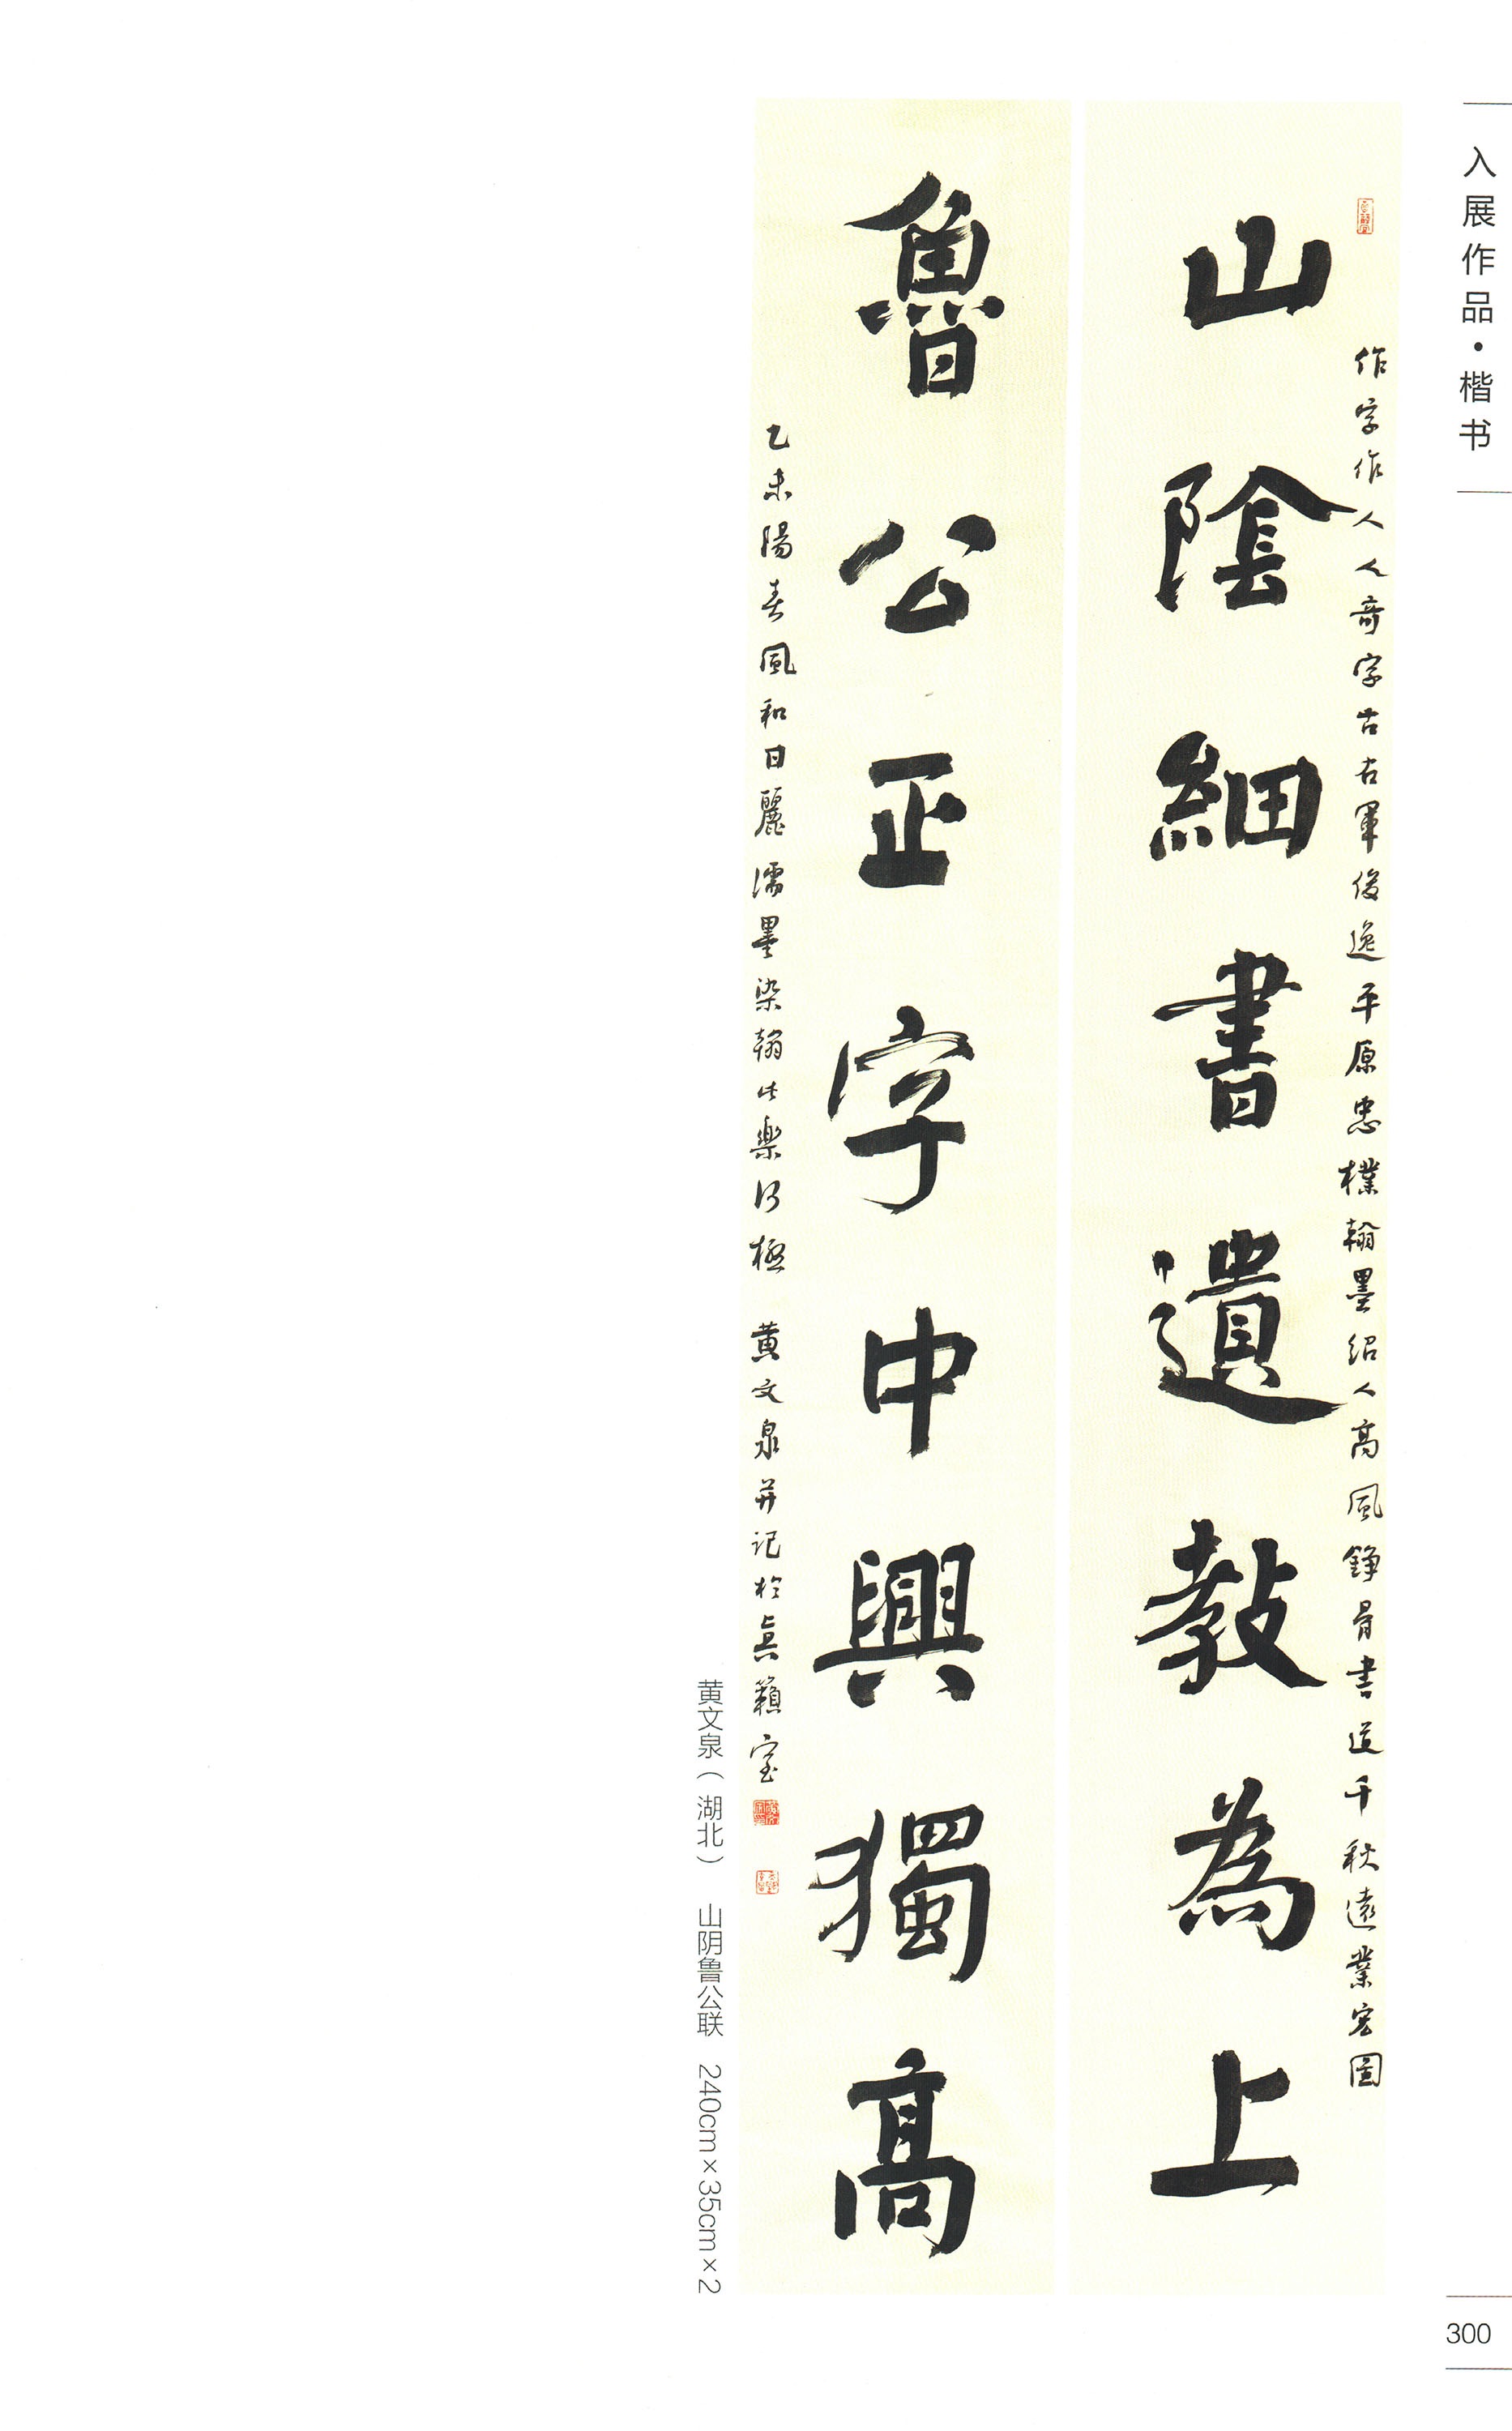 入展作品·楷书
作字作人人奇字古右軍俊逸平原忠樸翰墨紹人高風錚骨書道千秋遠業宏圖
山陰細書遺教為上
魯公正字中興獨高
乙未陽春風和日麗濡墨染翰此樂何極 黄文泉并記於真籟室
黄文泉（湖北） 山阴鲁公联 240cm×35cm×2
300